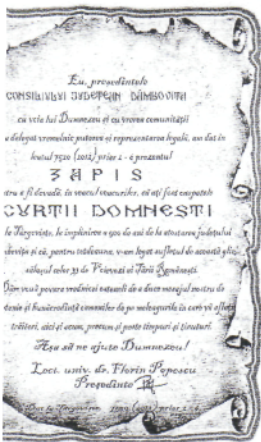 Eu, președintele
CONSILIULUI JUDEȚEAN DÂMBOVIȚA
cu voia lui Dumnezeu și cu vrerea comunității
a delegat vremelnic puterea și reprezentarea legală, am dat în
leatul 7520 (2012) prier 2 - è prezentul
ZAPIS
a fi dovadă, în veacul veacurilor, că ați fost oaspetele
CURTII DOMNEȘTI
le Târgoviște, la împlinirea a 520 de ani de la atestarea județului
și că, pentru totdeauna, v-am legat sufletul de această
celor 33 de Voievozi ai Țării Românești.
Dăm vouă povara vredniciei
și bunăcredință oamenilor de pe meleagurile în care vă aflați
trăitori, aici și acum, precum și peste timpuri și ținuturi.
Așa să ne ajute Dumnezeu!
Lect. univ. dr. Florin Popescu
Președinte